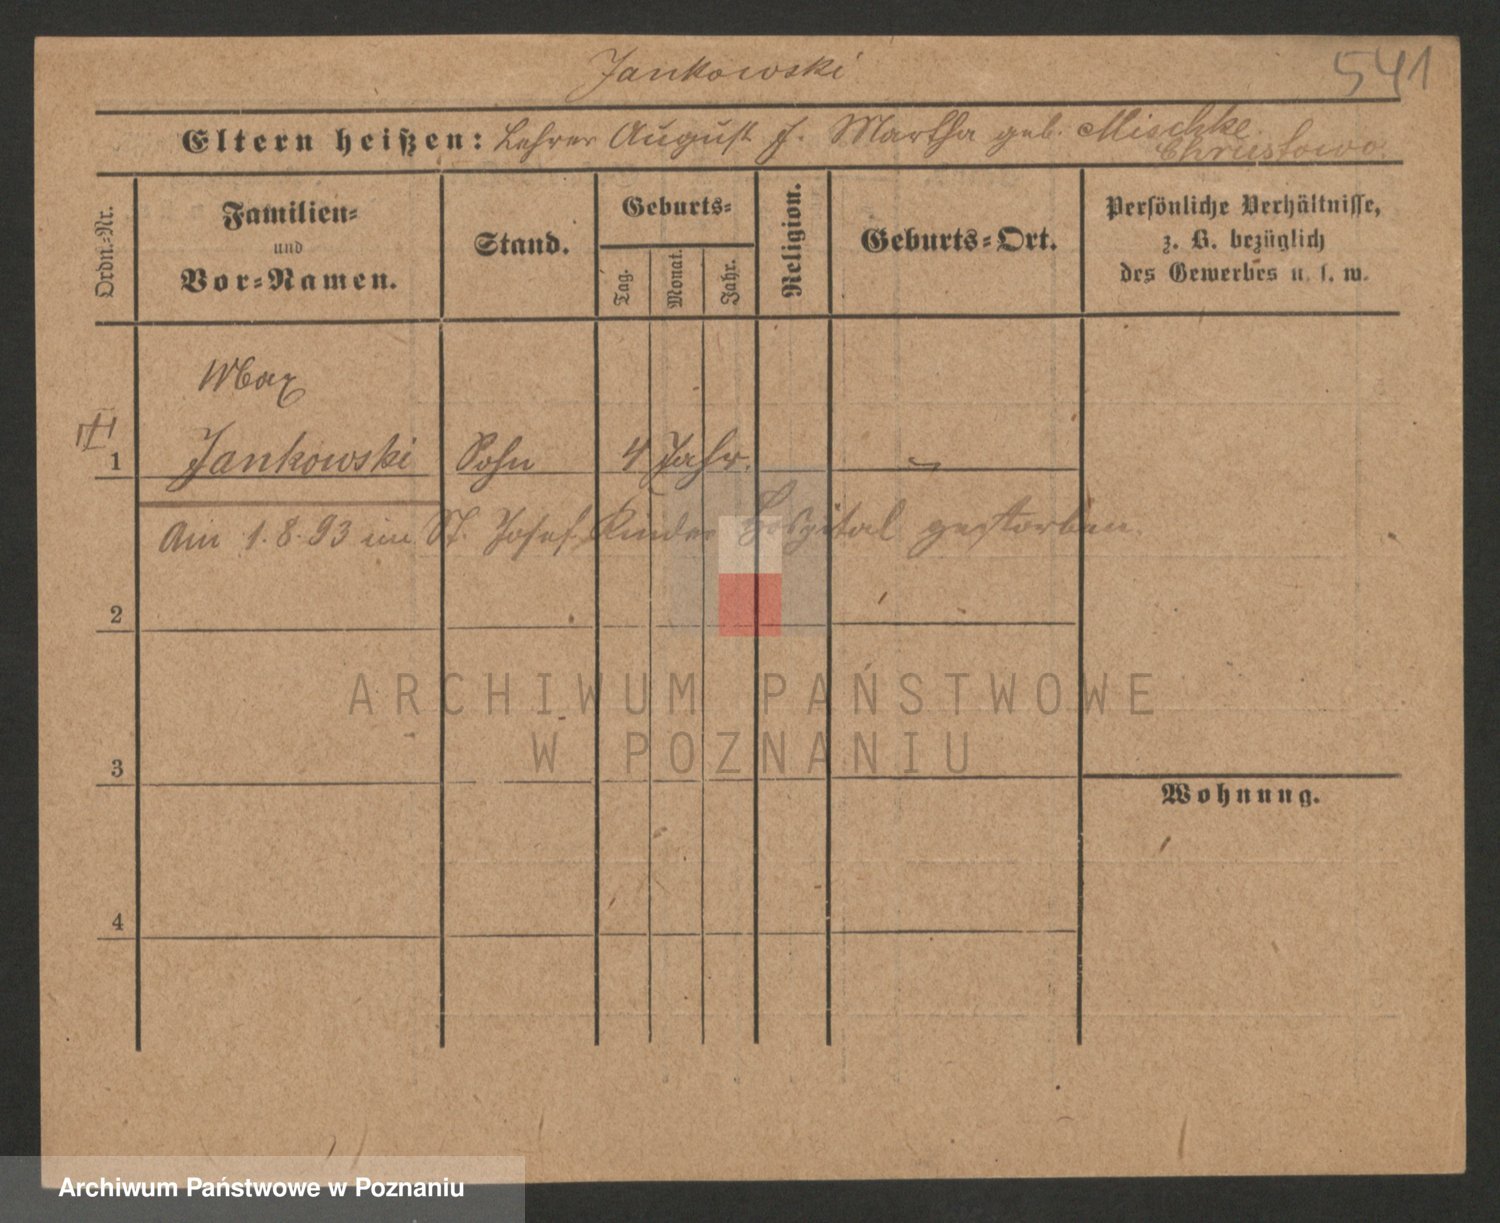 Jankowski
541
Eltern heißen: Lehrer August J. Martha geb. Mischke
Chrustowo
Ordn.=Nr.
Familien=
und
Vor=Namen.
Stand.
Geburts=
Tag.
Monat.
Jahr.
Religion.
Geburts=Ort.
Persönliche Verhältnisse,
z. B. bezüglich
des Gewerbes u. s. w.
Max
1 Jankowski Sohn 4 Jahr.
Am 1.8.93 im St. Josef Kinder Hospital gestorben.
2
3
Wohnung.
4
ARCHIWUM PAŃSTWOWE
W POZNANIU
Archiwum Państwowe w Poznaniu